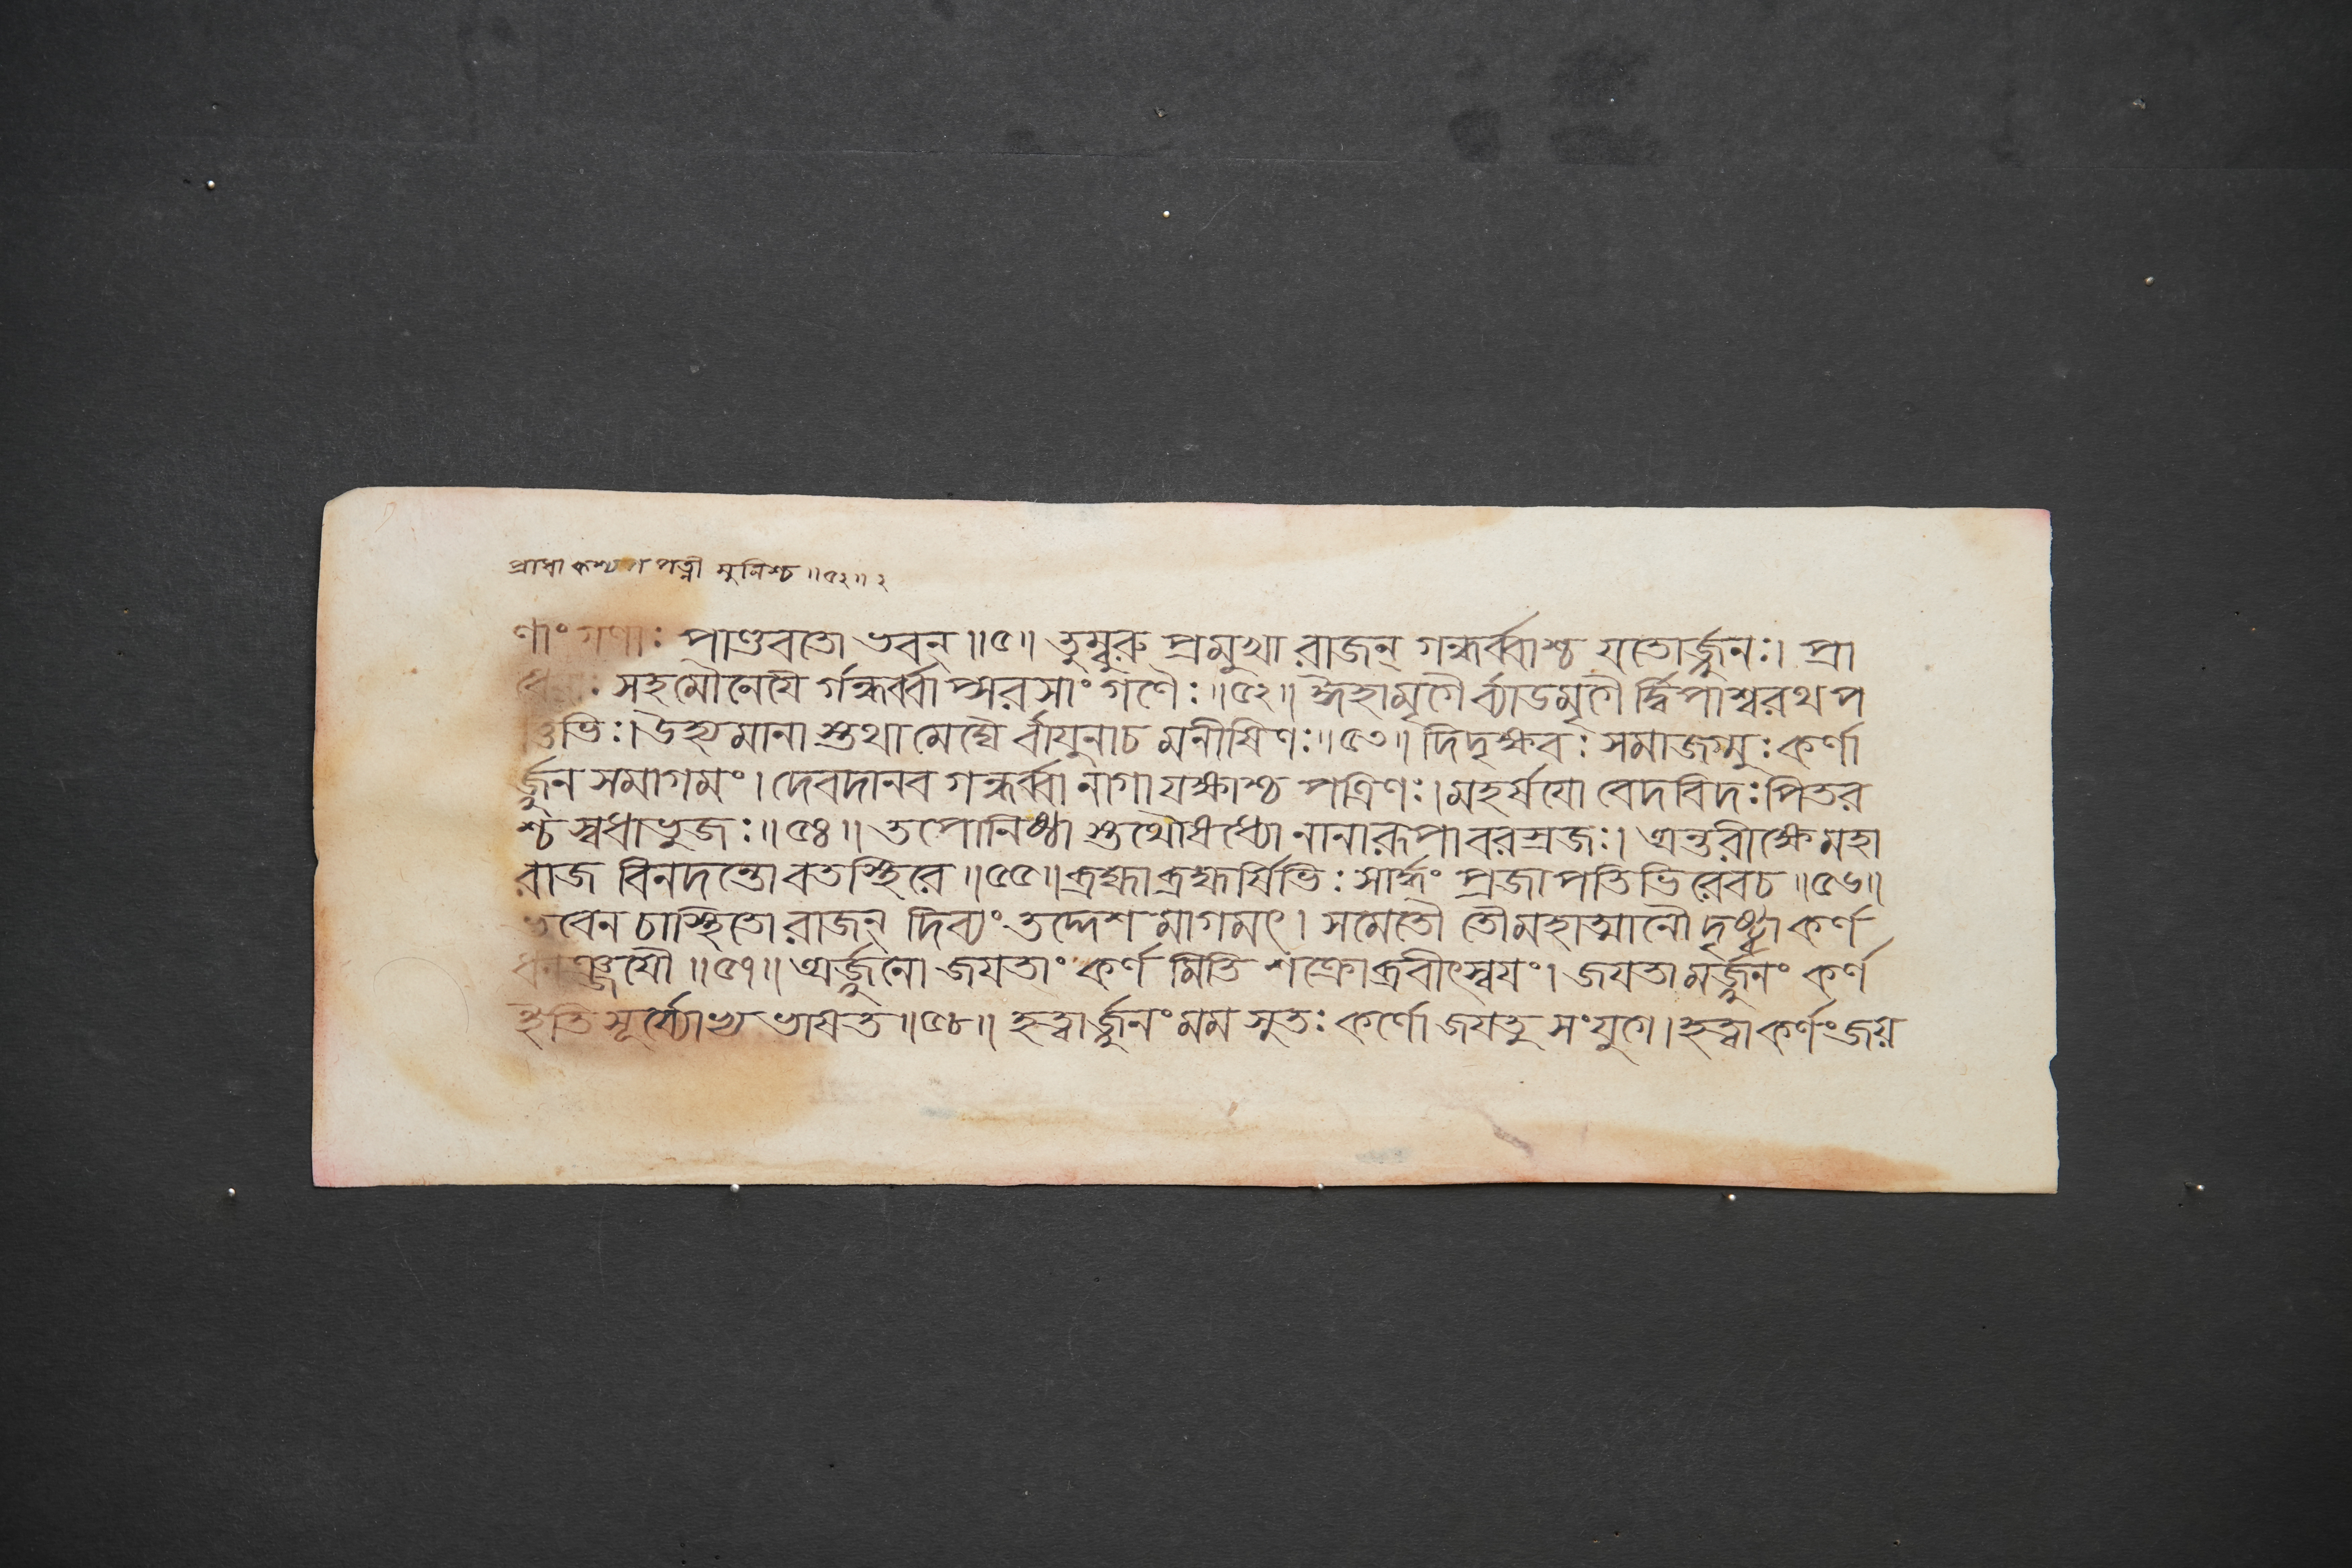 প্রাধা কশ্যপ পত্নী মুনিশ্চ ॥৫২॥ ২
ণাং গণাঃ পাণ্ডবতো ভবন্ ॥৫॥ তুম্বুরু প্রমুখা রাজন্ গন্ধর্ব্বাশ্চ যতোর্জ্জুনঃ। প্রা
সহমৌনেযৈ র্গন্ধর্ব্বা প্সরসাং গণৈঃ ॥৫২॥ ঈহামৃগৈ র্ব্যাডমৃগৈ র্দ্বিপাশ্বরথপ
ত্তিভিঃ। উহ্যমানা স্তথা মেঘৈ র্বাযুনাচ মনীষিণঃ ॥৫৩॥ দিদৃক্ষবঃ সমাজগ্মুঃ কর্ণা
র্জ্জুন সমাগমং। দেবদানব গন্ধর্ব্বা নাগা যক্ষাশ্চ পত্রিণঃ। মহর্ষযো বেদবিদঃ পিতর
শ্চ স্বধাভুজঃ ॥৫৪॥ তপোনিষ্ঠা স্তথৌষধ্যো নানারূপাবরস্রজঃ। অন্তরীক্ষে মহা
রাজ বিনদন্তো বতস্থিরে ॥৫৫॥ ব্রহ্মা ব্রহ্মর্ষিভিঃ সার্দ্ধং প্রজাপতিভিরেবচ ॥৫৬॥
ভবেন চাস্থিতো রাজন্ দিব্যং তদ্দেশ মাগমৎ। সমেতৌ তৌমহাত্মানৌ দৃষ্ট্বা কর্ণ
ধনঞ্জযৌ ॥৫৭॥ অর্জ্জুনো জযতাং কর্ণ মিতি শক্রোব্রবীৎস্বযং। জযতা মর্জ্জুনং কর্ণ
ইতি সূর্য্যোভ্য ভাষত ॥৫৮॥ হত্বার্জ্জুনং মম সুতঃ কর্ণো জযতু সংযুগে। হত্বা কর্ণং জয়